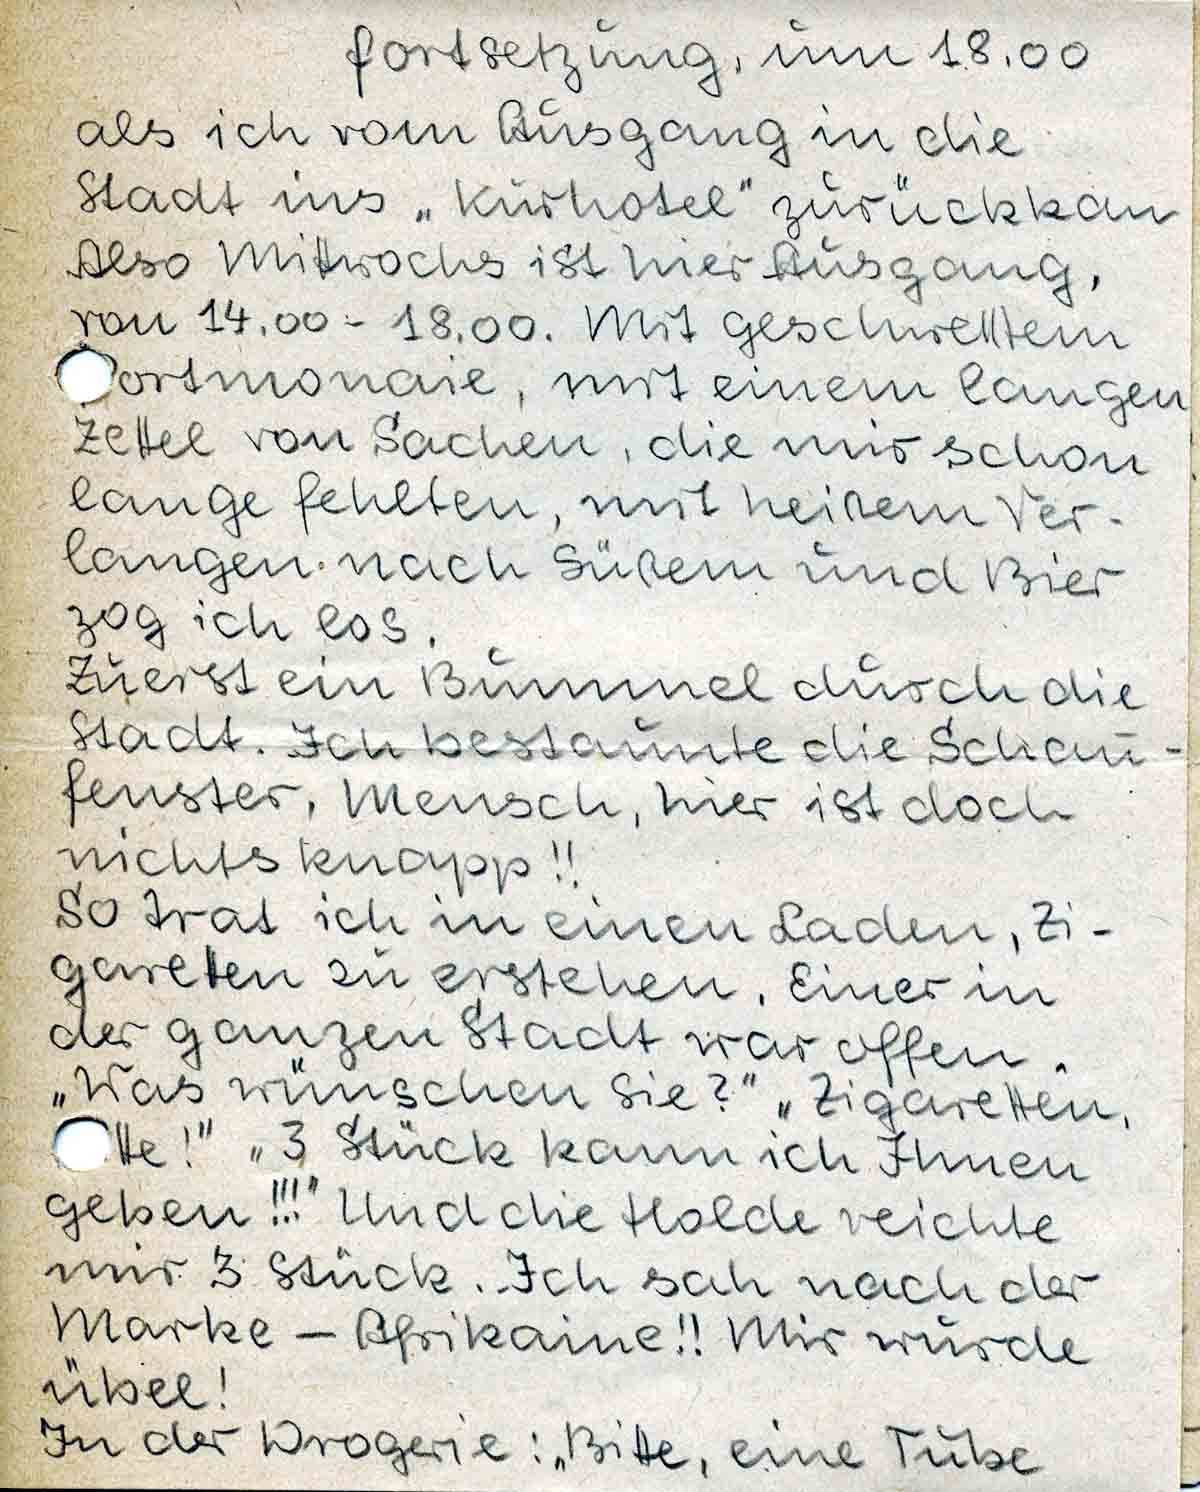 fortsetzung, um 18.00
als ich vom Ausgang in die
Stadt ins „Kurhotel" zurückkam
Also Mittwochs ist hier Ausgang,
von 14.00 - 18.00. Mit geschwelltem
Portmonaie, mit einem langen
Zettel von Sachen, die mir schon
lange fehlten, mit heißem Ver-
langen nach Süßem und Bier
zog ich los.
Zuerst ein Bummel durch die
Stadt. Ich bestaunte die Schau-
fenster, Mensch, hier ist doch
nichts knapp!!
So trat ich in einen Laden, Zi-
garetten zu erstehen. Einer in
der ganzen Stadt war offen.
„Was wünschen Sie?" „Zigaretten,
tte!" „3 Stück kann ich Ihnen
geben!!!" Und die Holde reichte
mir 3 Stück. Ich sah nach der
Marke – Afrikaine!! Mir wurde
übel!
In der Drogerie: „Bitte, eine Tube